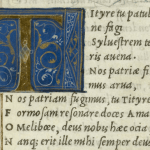 Ityre tu patul
ne fagi
Sylueſtrem te
ris auena.
Nos patriæ fi
mus arua,
Nos patriam fugimus, tu Tityre
Formoſam reſonare doces Ama
O Melibœe, deus nobis hæc ocia
Nanq; erit ille mihi ſemper deus